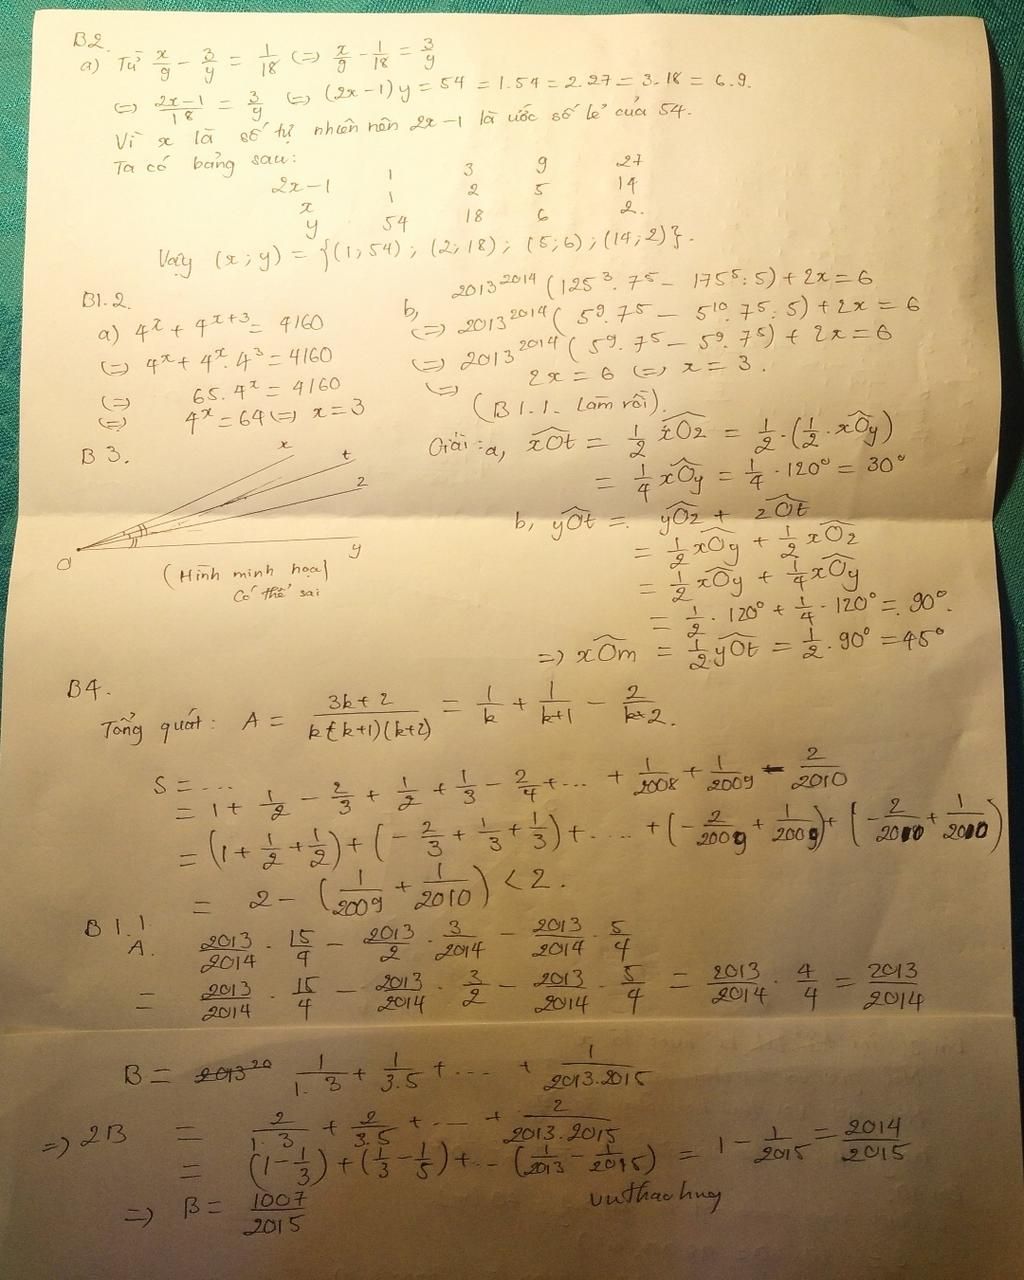 B2.
a) Từ x/9 - 3/y = 1/18 (=) x/9 - 1/18 = 3/y
(=) (2x-1)/18 = 3/y (=) (2x-1)y = 54 = 1.54 = 2.27 = 3.18 = 6.9.
Vì x là số tự nhiên nên 2x-1 là ước số lẻ của 54.
Ta có bảng sau:
2x-1 1 3 9 27
x 1 2 5 14
y 54 18 6 2.
Vậy (x;y) = {(1;54); (2;18); (5;6); (14;2)}.
B1.2.
a) 4^x + 4^(x+3) = 4160
(=) 4^x + 4^x. 4^3 = 4160
(=) 65. 4^x = 4160
(=) 4^x = 64 (=) x = 3
b, 2013^2014 (125^3. 7^5 - 175^5 : 5) + 2x = 6
(=) 2013^2014 (5^9. 7^5 - 5^10. 7^5 : 5) + 2x = 6
(=) 2013^2014 (5^9. 7^5 - 5^9. 7^5) + 2x = 6
(=) 2x = 6 (=) x = 3.
(B1.1. Làm rồi).
B3.
x
t
z
O
y
(Hình minh họa)
Có thể sai
Giải: a, xOt = 1/2 xOz = 1/2 . (1/2 . xOy)
= 1/4 xOy = 1/4 . 120° = 30°
b, yOt = yOz + zOt
= 1/2 xOy + 1/2 xOz
= 1/2 xOy + 1/4 xOy
= 1/2 . 120° + 1/4 . 120° = 90°.
=) xOm = 1/2 yOt = 1/2 . 90° = 45°
B4.
Tổng quát: A = (3k+2)/(k(k+1)(k+2)) = 1/k + 1/(k+1) - 2/(k+2).
S = ...
= 1 + 1/2 - 2/3 + 1/2 + 1/3 - 2/4 + ... + 1/2008 + 1/2009 - 2/2010
= (1 + 1/2 + 1/2) + (-2/3 + 1/3 + 1/3) + .... + (-2/2009 + 1/2009) + (-2/2010 + 1/2010)
= 2 - (1/2009 + 1/2010) < 2.
B1.1
A. 2013/2014 . 15/4 - 2013/2 . 3/2014 - 2013/2014 . 5/4
= 2013/2014 . 15/4 - 2013/2014 . 3/2 - 2013/2014 . 5/4 = 2013/2014 . 4/4 = 2013/2014
B = 1/1.3 + 1/3.5 + ... + 1/2013.2015
=) 2B = 2/1.3 + 2/3.5 + ... + 2/2013.2015
= (1 - 1/3) + (1/3 - 1/5) + ... (1/2013 - 1/2015) = 1 - 1/2015 = 2014/2015
=) B = 1007/2015
vuthaohuy